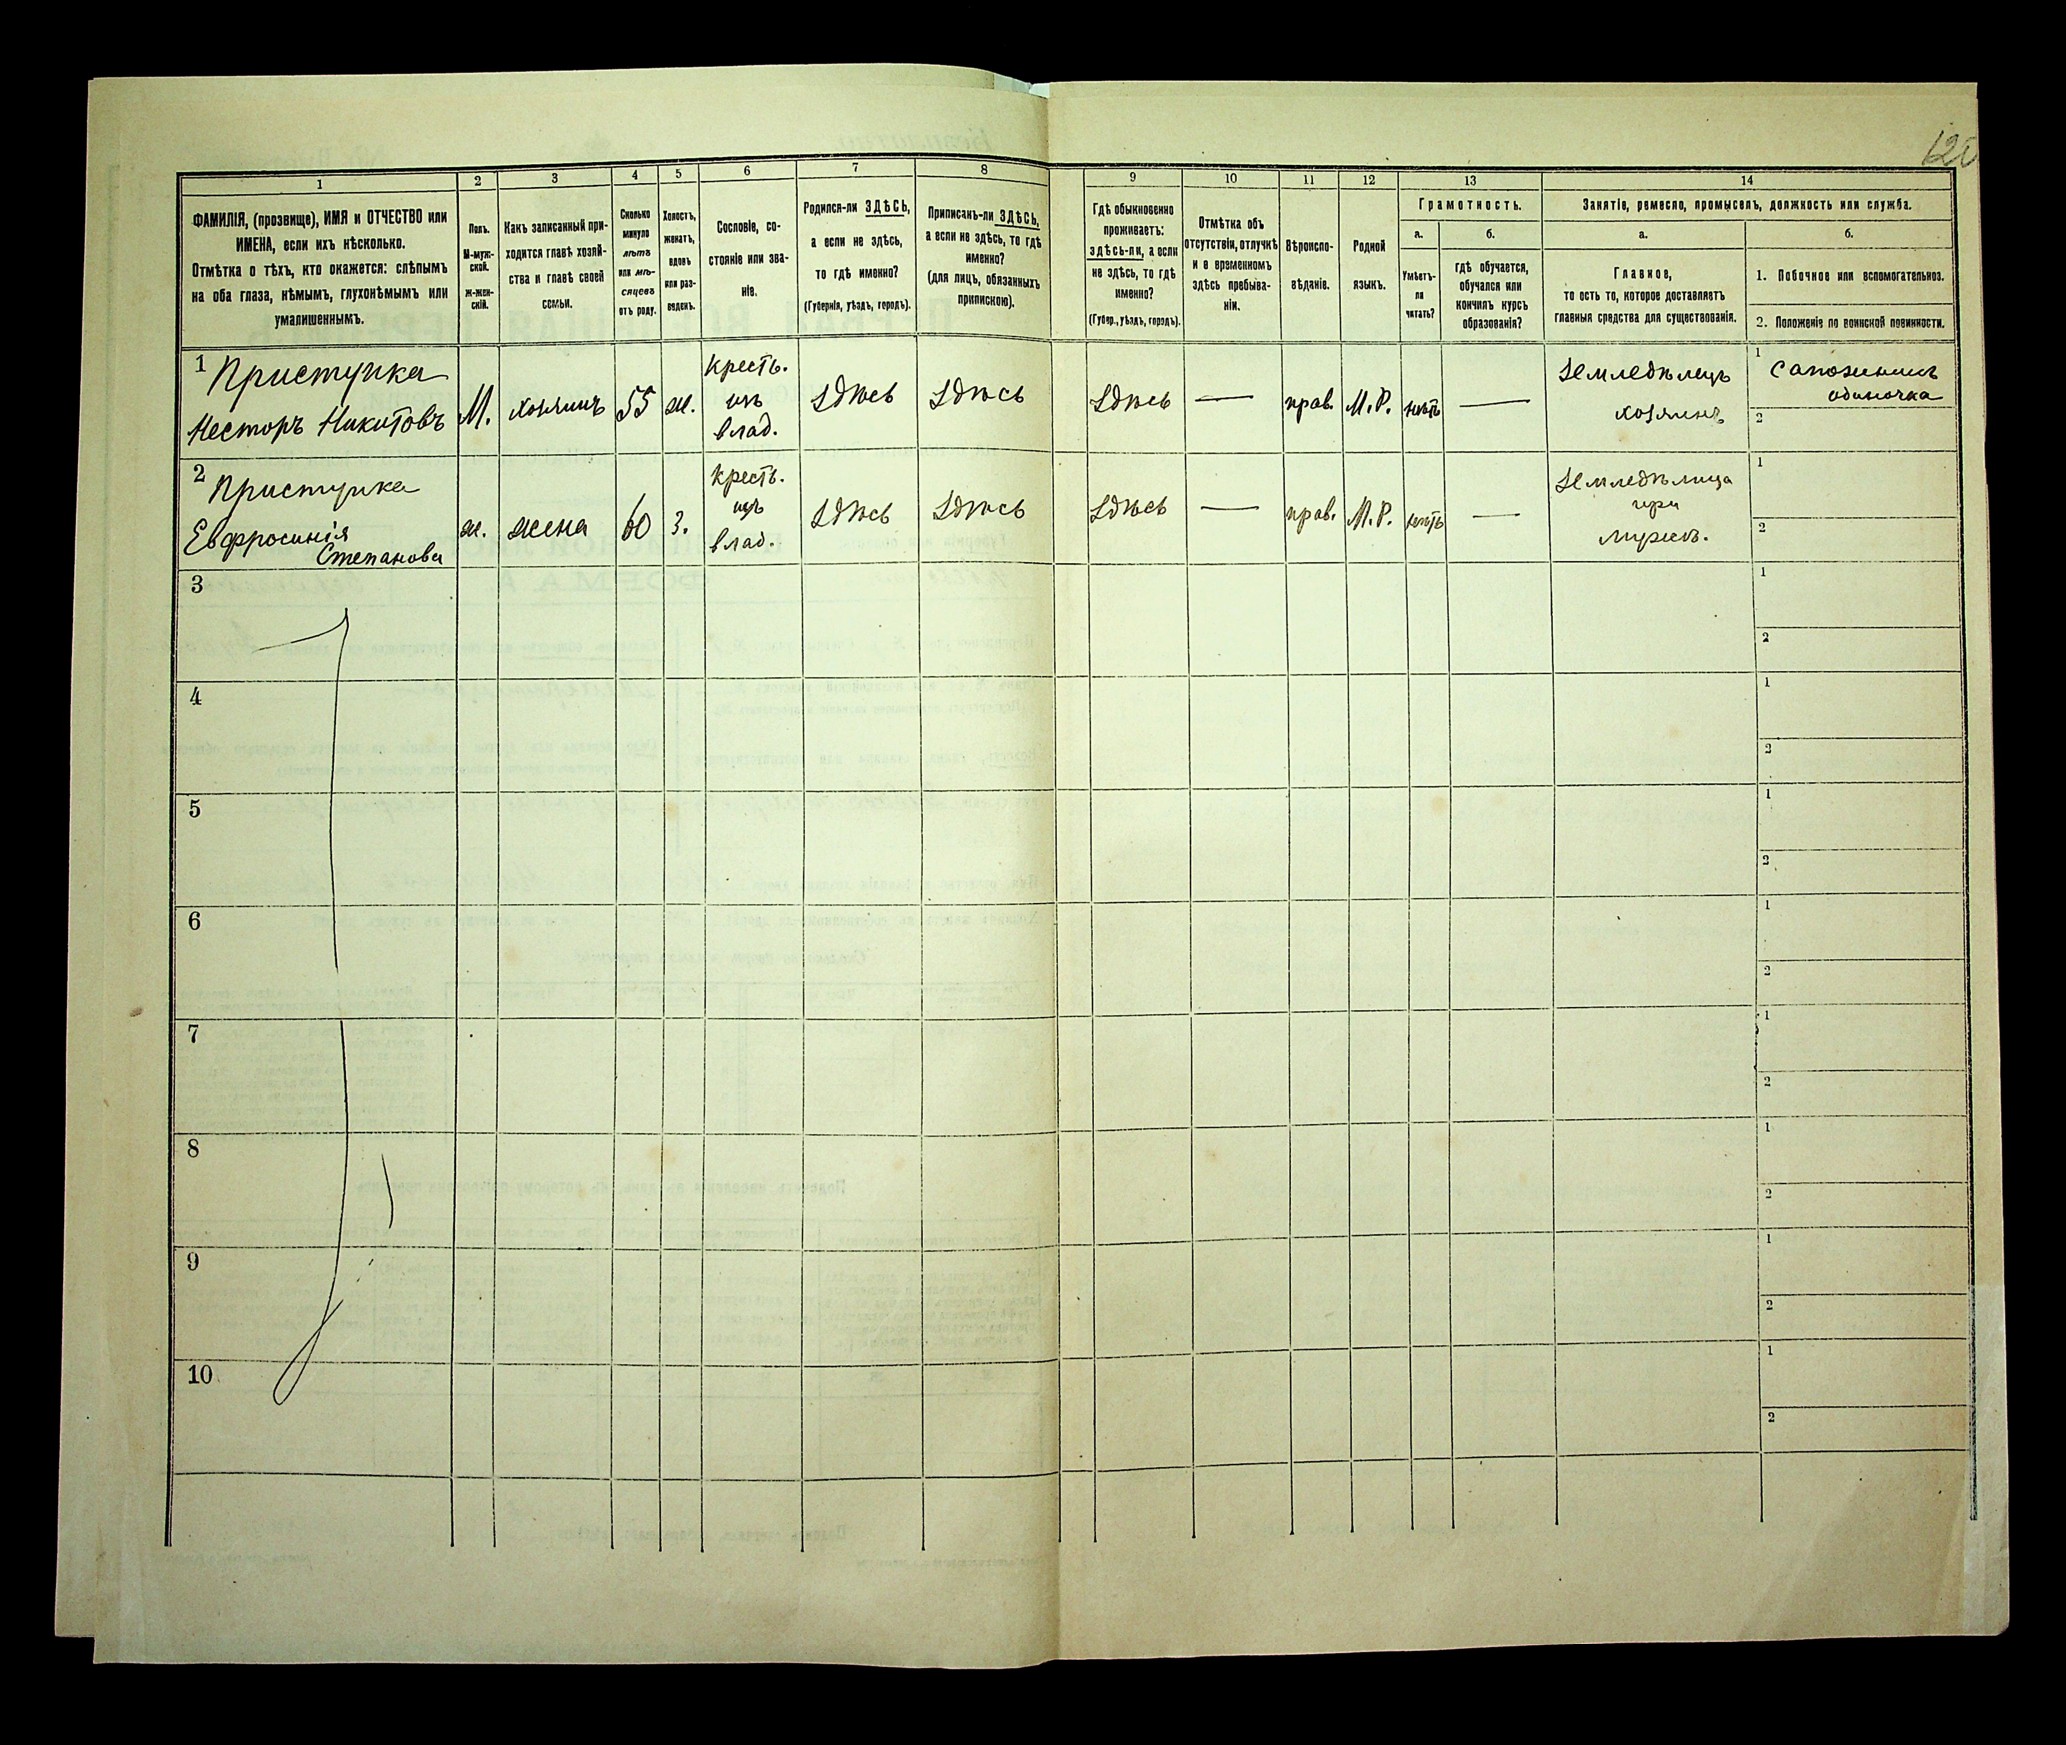 1
2
3
4
5
6
7
8
9
10
11
12
13
14
ФАМИЛІЯ, (прозвище), ИМЯ и ОТЧЕСТВО или
ИМЕНА, если ихъ нѣсколько.
Отмѣтка о тѣхъ, кто окажется: слѣпымъ
на оба глаза, нѣмымъ, глухонѣмымъ или
умалишеннымъ.
Полъ.
М-муж-
ской.
ж-жен-
скій.
Какъ записанный при-
ходится главѣ хозяй-
ства и главѣ своей
семьи.
Сколько
минуло
лѣтъ
или мѣ-
сяцевъ
отъ роду.
Холостъ,
женатъ,
вдовъ
или раз-
веденъ.
Сословіе, со-
стояніе или зва-
ніе.
Родился-ли ЗДѢСЬ,
а если не здѣсь,
то гдѣ именно?
(Губернія, уѣздъ, городъ).
Приписанъ-ли ЗДѢСЬ,
а если не здѣсь, то гдѣ
именно?
(для лицъ, обязанныхъ
припискою).
Гдѣ обыкновенно
проживаетъ:
здѣсь-ли, а если
не здѣсь, то гдѣ
именно?
(Губер., уѣздъ, городъ).
Отмѣтка объ
отсутствіи, отлучкѣ
и о временномъ
здѣсь пребыва-
ніи.
Вѣроиспо-
вѣданіе.
Родной
языкъ.
Грамотность.
а.
Умѣетъ-
ли
читать?
б.
гдѣ обучается,
обучался или
кончилъ курсъ
образованія?
Занятіе, ремесло, промыселъ, должность или служба.
а.
Главное,
то есть то, которое доставляетъ
главныя средства для существованія.
б.
1. Побочное или вспомогательное.
2. Положеніе по воинской повинности.
1 Приступка
Несторъ Никитовъ
М.
хозяинъ
55
ж.
Крестъ.
изъ
влад.
Здѣсь
Здѣсь
Здѣсь
—
прав.
М.Р.
нѣтъ
—
Земледѣлецъ
хозяинъ
1
Сапожникъ
одиночка
2
2 Приступка
Евфросинія
Степанова
ж.
жена
60
З.
Крестъ.
изъ
влад.
Здѣсь
Здѣсь
Здѣсь
—
прав.
М.Р.
нѣтъ
—
Земледѣлица
при
мужѣ.
1
2
3
1
2
4
1
2
5
1
2
6
1
2
7
1
2
8
1
2
9
1
2
10
1
2